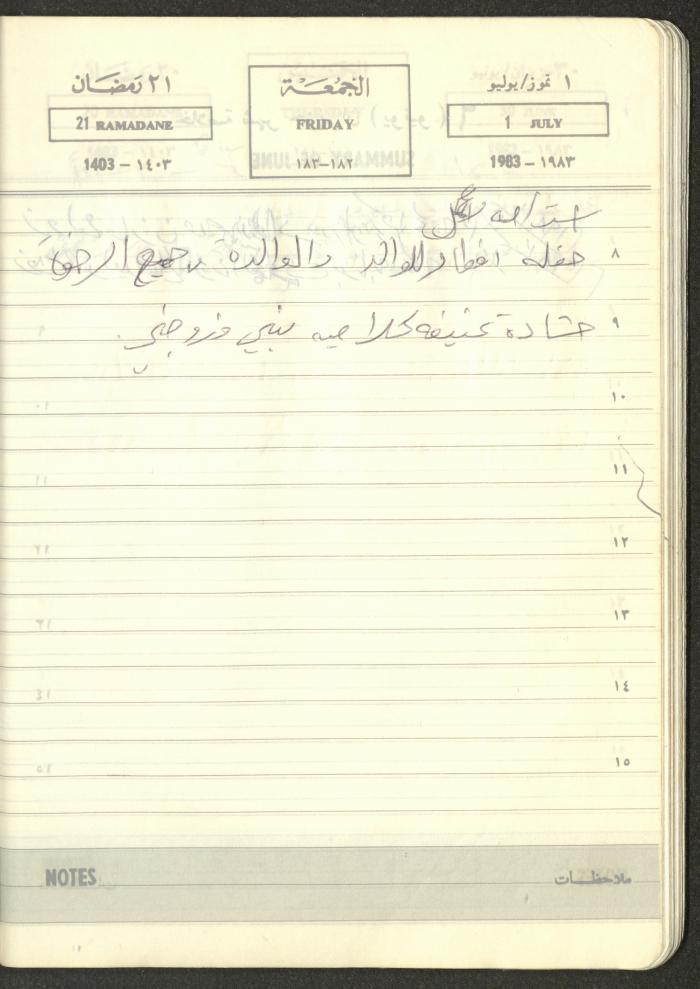 ٢١ رَمَضَان
21 RAMADANE
1403 – ١٤٠٣
الجُمُعَة
FRIDAY
١٨٢–١٨٣
١ تموز/يوليو
1 JULY
1983 – ١٩٨٣
SUMMARY OF JUNE
٨ حفلة افطار للوالد والوالدة وجميع الاخوة
٩ مشادة عنيفة بين
١٠
١١
١٢
١٣
١٤
١٥
NOTES
ملاحظــات